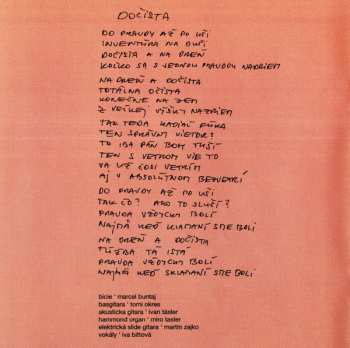 DOČISTA
DO PRAVDY AŽ PO UŠI
INVENTÚRA NA DUŠI
DOČISTA A NA DREŇ
KOĽKO SA S JEDNOU PRAVDOU NADRIEM
NA DREŇ A DOČISTA
TOTÁLNA OČISTA
KONEČNE NA ZEM
Z VEĽKEJ VÝŠKY NAZRIEM
TAK TEDA KADIAĽ FÚKA
TEN SPRÁVNY VIETOR?
TO IBA PÁN BOH TUŠÍ
TEN S VETROM VIE TO
VA UŽ ČOSI VETRÍM
AJ V ABSOLÚTNOM BEZVETRÍ
DO PRAVDY AŽ PO UŠI
TAK ČO? AKO TO SLUŠÍ?
PRAVDA VŽDYCKY BOLÍ
NAJMÄ KEĎ KLAMANÍ SME BOLI
NA DREŇ A DOČISTA
TÚŽBA TÁ ISTÁ
PRAVDA VŽDYCKY BOLÍ
NAJMÄ KEĎ SKLAMANÍ SME BOLI
bicie * marcel buntaj
basgitara * tomi okres
akustická gitara * ivan tásler
hammond organ * miro tásler
elektrická slide gitara * martin zajko
vokály * iva bittová